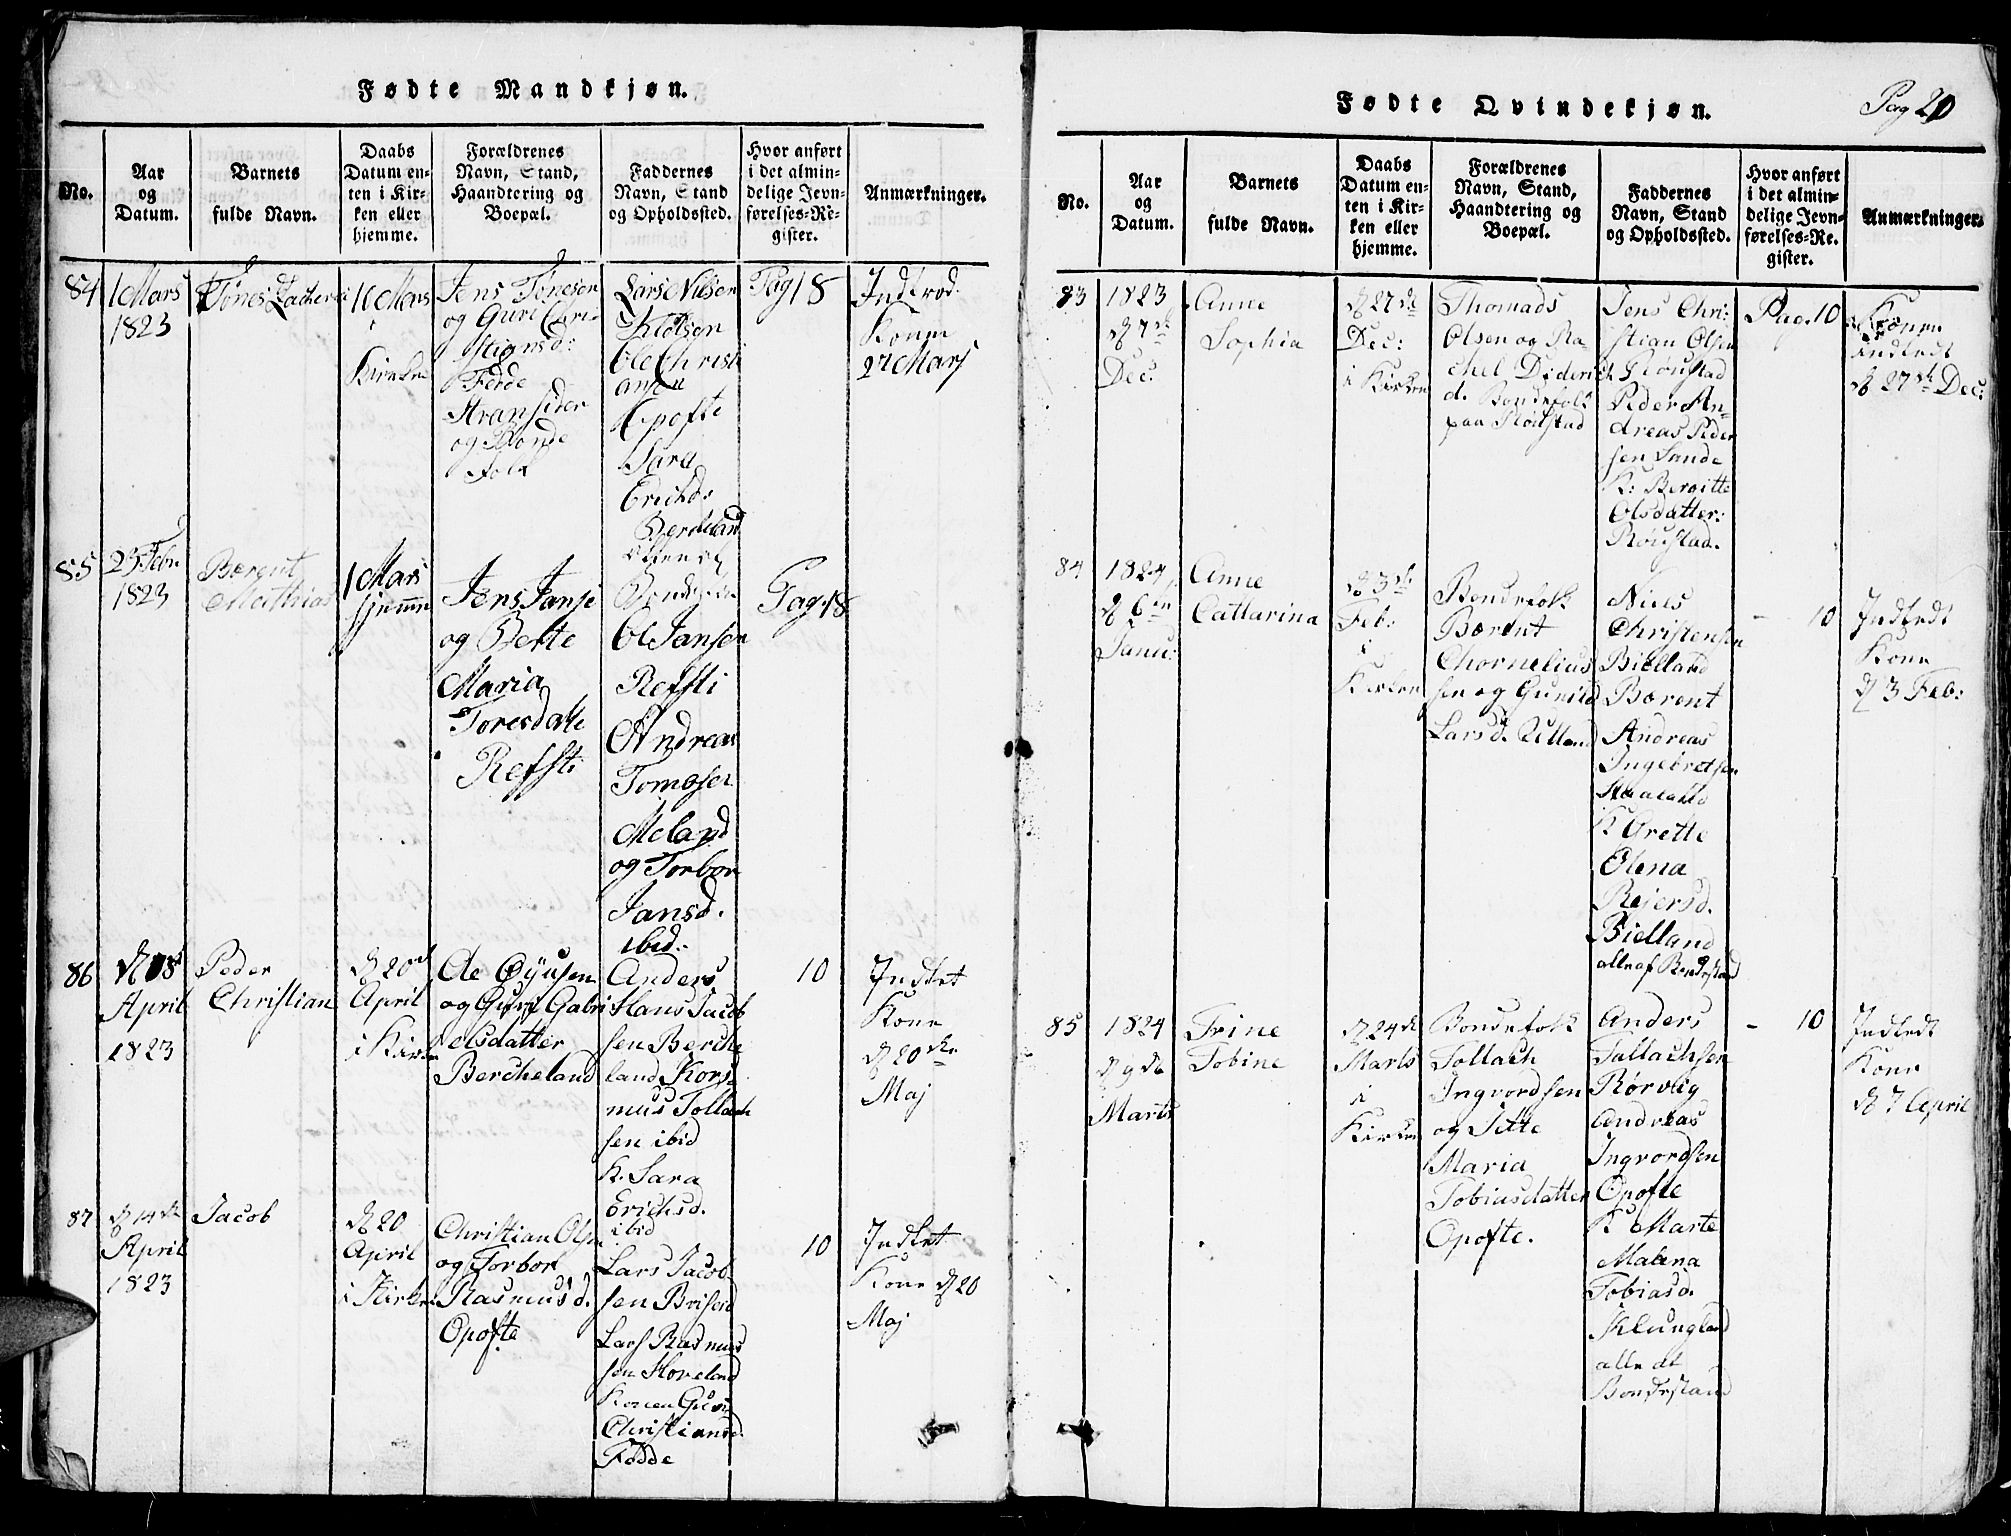 Fødte Mandkjøn.
No.
Aar
og
Datum.
Barnets
fulde Navn.
Daabs
Datum en-
ten i Kir-
ken eller
hjemme.
Forældrenes
Navn, Stand,
Haandtering og
Boepæl.
Faddernes
Navn, Stand
og Opholdssted.
Hvor anført
i det almin-
delige Jevn-
førelses-Re-
gister.
Anmærkninger.
84
1 Mars
1823
Tønes Zacharei
Mars
i
Kirken
Jens Tønesen
og Guri
Bonde
folk
Lars Nilsen
Ole Christi
ansen
Opofte
Sara
Erichds
Pag 18
Indtrød.
Konn
Mars
85
25 Febr.
1823
Berent
Mathias
1 Mars
hjemme
Jens Janse
og Berte
Maria
Toresdatte
Refsti
Ol Jansen
Refsti
Andreas
Tomøsen
Meland
og Torbor
Jansd.
ibid.
Pag. 18
86
April
1823
Peder
Christian
d 20d
April
i Kirken
og Guri Gabri
elsdatter
Bercheland
Anders
Hans Jacob
sen Berche
land
mus Tollach
sen ibid
K. Sara
Erichsd.
ibid
10
Indlet
Kone
d 20de
Maj
87
d 14de
April
1823
Jacob
d 20
April
i Kirken
Christian Olsen
og Torbor
Rasmusd.
Opofte
Lars Jacob
sen Briseid
Lars Rasmus
sen Hoveland
Konen Guri
Christiansd.
Fodde
10
Indlet
Kone d 20
Maj
Fødte Qvindekjøn.
Pag 20
No.
Aar
og
Datum.
Barnets
fulde Navn.
Daabs
Datum en-
ten i Kir-
ken eller
hjemme.
Forældrenes
Navn, Stand,
Haandtering og
Boepæl.
Faddernes
Navn, Stand
og Opholdssted.
Hvor anført
i det almin-
delige Jevn-
førelses-Re-
gister.
Anmærkninger.
83
1823
d 7de
Dec:
Anne
Sophia
d 27de
Dec:
i Kirken
Thomads
Olsen og Ra
chel Diderich
d. Bondefolk
paa Røustad
Jens Chri:
stian Olsen
Røustad
Peder An-
dreas Peder
sen Sande
K: Bergitte
Olsdatter:
Røustad.
Pag. 10
Konen
indledt
d 27de Dec:
84
1824
d 6te
Janu:
Anne
Cattarina
d 3de
Feb:
i
Kirken
Bondefolk
Berent
Chornelius
sen og Gunild
Larsd.
Niels
Christensen
Bielland
Berent
Andreas
Ingebretsen
K Grette
Olena
Reiersd.
Bielland
alle af Bondestand
- 10
Indledt
Kone
d 3 Feb:
85
1824
d 9de
Marts
Trine
Tobine
d 24de
Marts
i
Kirken
Bondefolk
Tollach
Ingvordsen
og Sitte
Maria
Tobiasdatter
Opofte.
Anders
Tallachsen
Rørvlig
Andreas
Ingvordsen
Opofte
K Marte
Malena
Tobiasd.
Klungland
alle af
Bondestand
- 10
Indledt
Kone
d 7 April